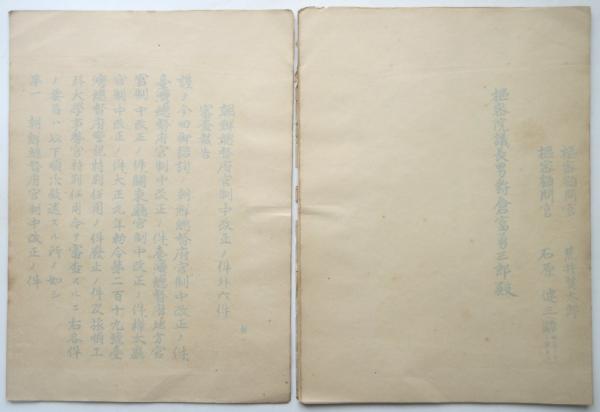 樞密顧問官 荒井賢太郎
樞密顧問官 石原健三
樞密院議長男爵倉富勇三郎殿
朝鮮總督府官制中改正ノ件外六件
審査報告
謹テ今回御諮詢ノ朝鮮總督府官制中改正ノ件
臺灣總督府官制中改正ノ件臺灣總督府地方官
官制中改正ノ件關東廳官制中改正ノ件樺太廳
官制中改正ノ件大正元年勅令第二百十九號臺
灣總督府 特別任用ノ件廢止ノ件及旅順工
科大學事務官特別任用令ヲ審査スルニ右各件
ノ要旨ハ以下順次敍述スル所ノ如シ
第一 朝鮮總督府官制中改正ノ件